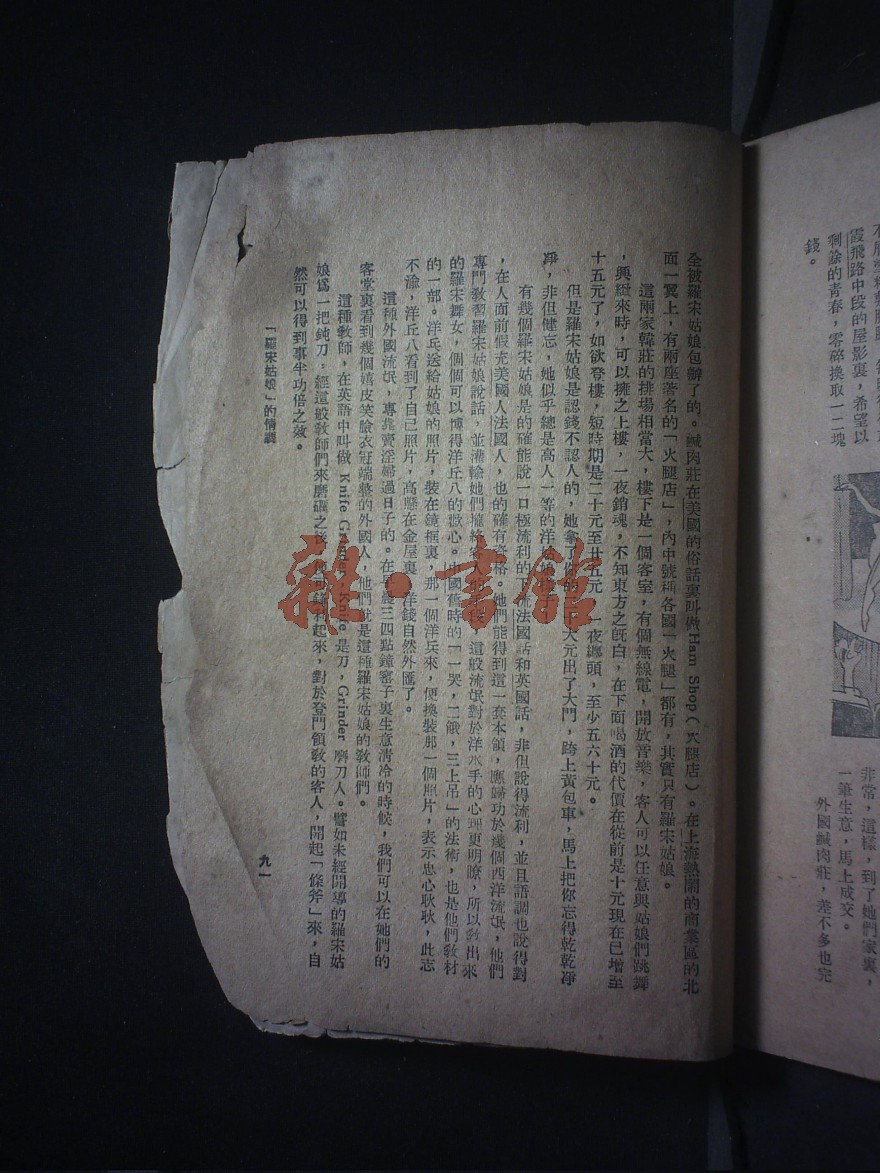 霞飛路中段的屋影裏，希望以
剩餘的青春，零碎換取一二塊
錢。
非常，這樣，到了她們家裏，
一筆生意，馬上成交。
外國鹹肉莊，差不多也完
全被羅宋姑娘包辦了的。鹹肉莊在美國的俗話裏叫做Ham Shop（火腿店）。在上海熱鬧的商業區的北
面一翼上，有兩座著名的「火腿店」，內中號稱各國「火腿」都有，其實只有羅宋姑娘。
這兩家韓莊的排場相當大，樓下是一個客室，有個無線電，開放音樂，客人可以任意與姑娘們跳舞
，興緻來時，可以擁之上樓，一夜銷魂，不知東方之旣白，在下面喝酒的代價在從前是十元現在已增至
十五元了，如欲登樓，短時期是二十元至廿五元，一夜纏頭，至少五六十元。
但是羅宋姑娘是認錢不認人的，她拿了你的 十大元出了大門，跨上黃包車，馬上把你忘得乾乾凈
凈，非但健忘，她似乎總是高人一等的洋姑娘
有幾個羅宋姑娘是的確能說一口極流利的下流法國話和英國話，非但說得流利，並且語調也說得對
，在人面前假充美國人法國人，也的確有資格。她們能得到這一套本領，應歸功於幾個西洋流氓，他們
專門敎習羅宋姑娘說話，並灌輸她們攏絡客 ，這般流氓對於洋水手的心理更明瞭，所以敎出來
的羅宋舞女，個個可以博得洋丘八的歡心。中國舊時的「一哭，二餓，三上吊」的法術，也是他們敎材
的一部。洋兵送給姑娘的照片，裝在鏡框裏，那一個洋兵來，便換裝那一個照片，表示忠心耿耿，此志
不渝，洋丘八看到了自己照片，高懸在金屋裏 洋錢自然外匯了。
這種外國流氓，專靠賣淫婦過日子的。在早晨三四點鐘窰子裏生意清冷的時候，我們可以在她們的
客堂裏看到幾個嬉皮笑臉衣冠端整的外國人，他們就是這種羅宋姑娘的敎師們。
這種敎師，在英語中叫做 Knife Grinder，Knife 是刀，Grinder 磨刀人。譬如未經開導的羅宋姑
娘爲一把鈍刀，經這般敎師們來磨礪之後， 可鋒利起來，對於登門領敎的客人，開起「條斧」來，自
然可以得到事半功倍之效。
「羅宋姑娘」的情調
九一
雜·書館